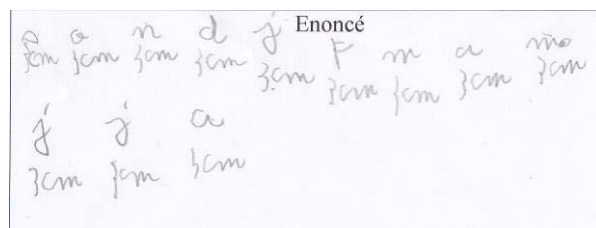 Enoncé
s o n d j F m a
3cm 3cm 3cm 3cm 3cm 3cm 3cm 3cm 3cm
j j a
3cm 3cm 3cm